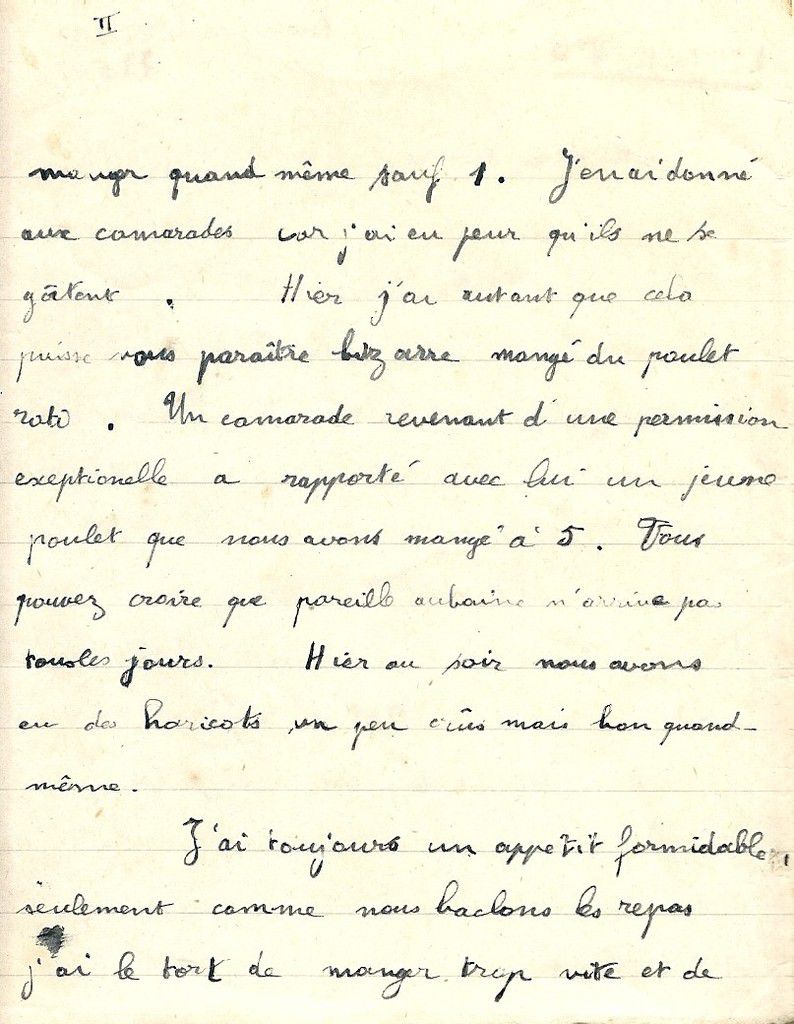 II
manger quand même sauf 1. J'en ai donné
aux camarades car j'ai eu peur qu'ils ne se
gâtent. Hier j'ai autant que cela
puisse vous paraître bizarre mangé du poulet
roti. Un camarade revenant d'une permission
exeptionelle a rapporté avec lui un jeune
poulet que nous avons mangé à 5. Vous
pouvez croire que pareille aubaine n'arrive pas
tous les jours. Hier au soir nous avons
eu des haricots un peu crûs mais bon quand-
même.
J'ai toujours un appétit formidable,
seulement comme nous baclons les repas
j'ai le tort de manger trop vite et de